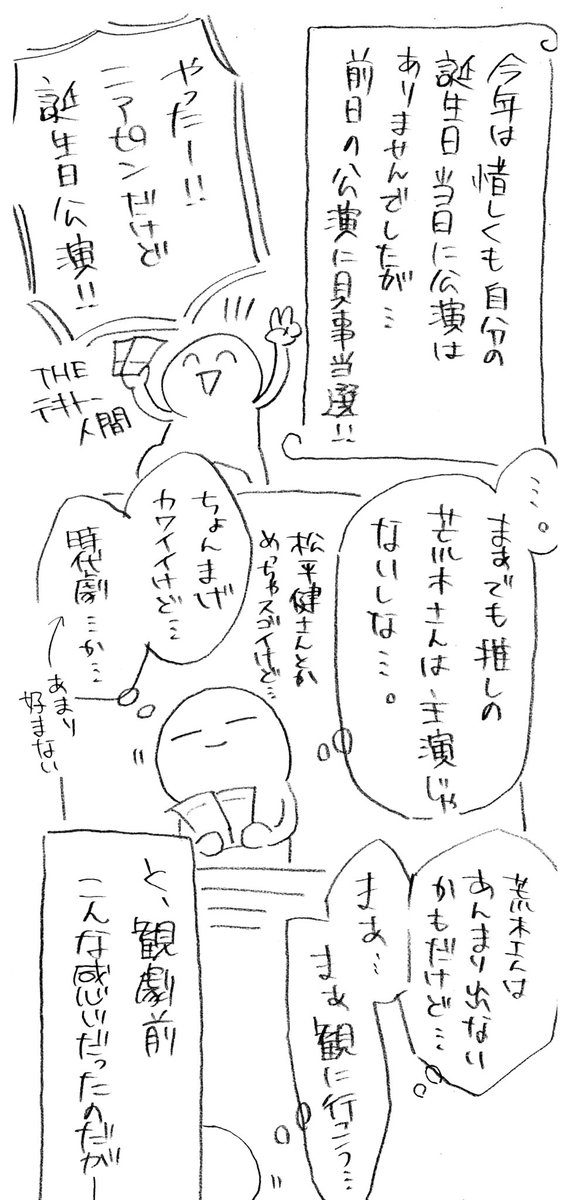 今年は惜しくも自分の
誕生日当日に公演は
ありませんでしたが…
前日の公演に見事当選!!
やったー!!
ニアピンだけど
誕生日公演!!
THE
テキトー
人間
…。
まあでも推しの
荒木さんは主演じゃ
ないしな…。
松平健さんとか
めっちゃスゴイけど…
ちょんまげ
カワイイけど…
時代劇…か…
あまり
好まない
荒木さんは
あんまり出ない
かもだけど…
まあ…
まあ観に行こう…
と、観劇前
こんな感じだったのだが―